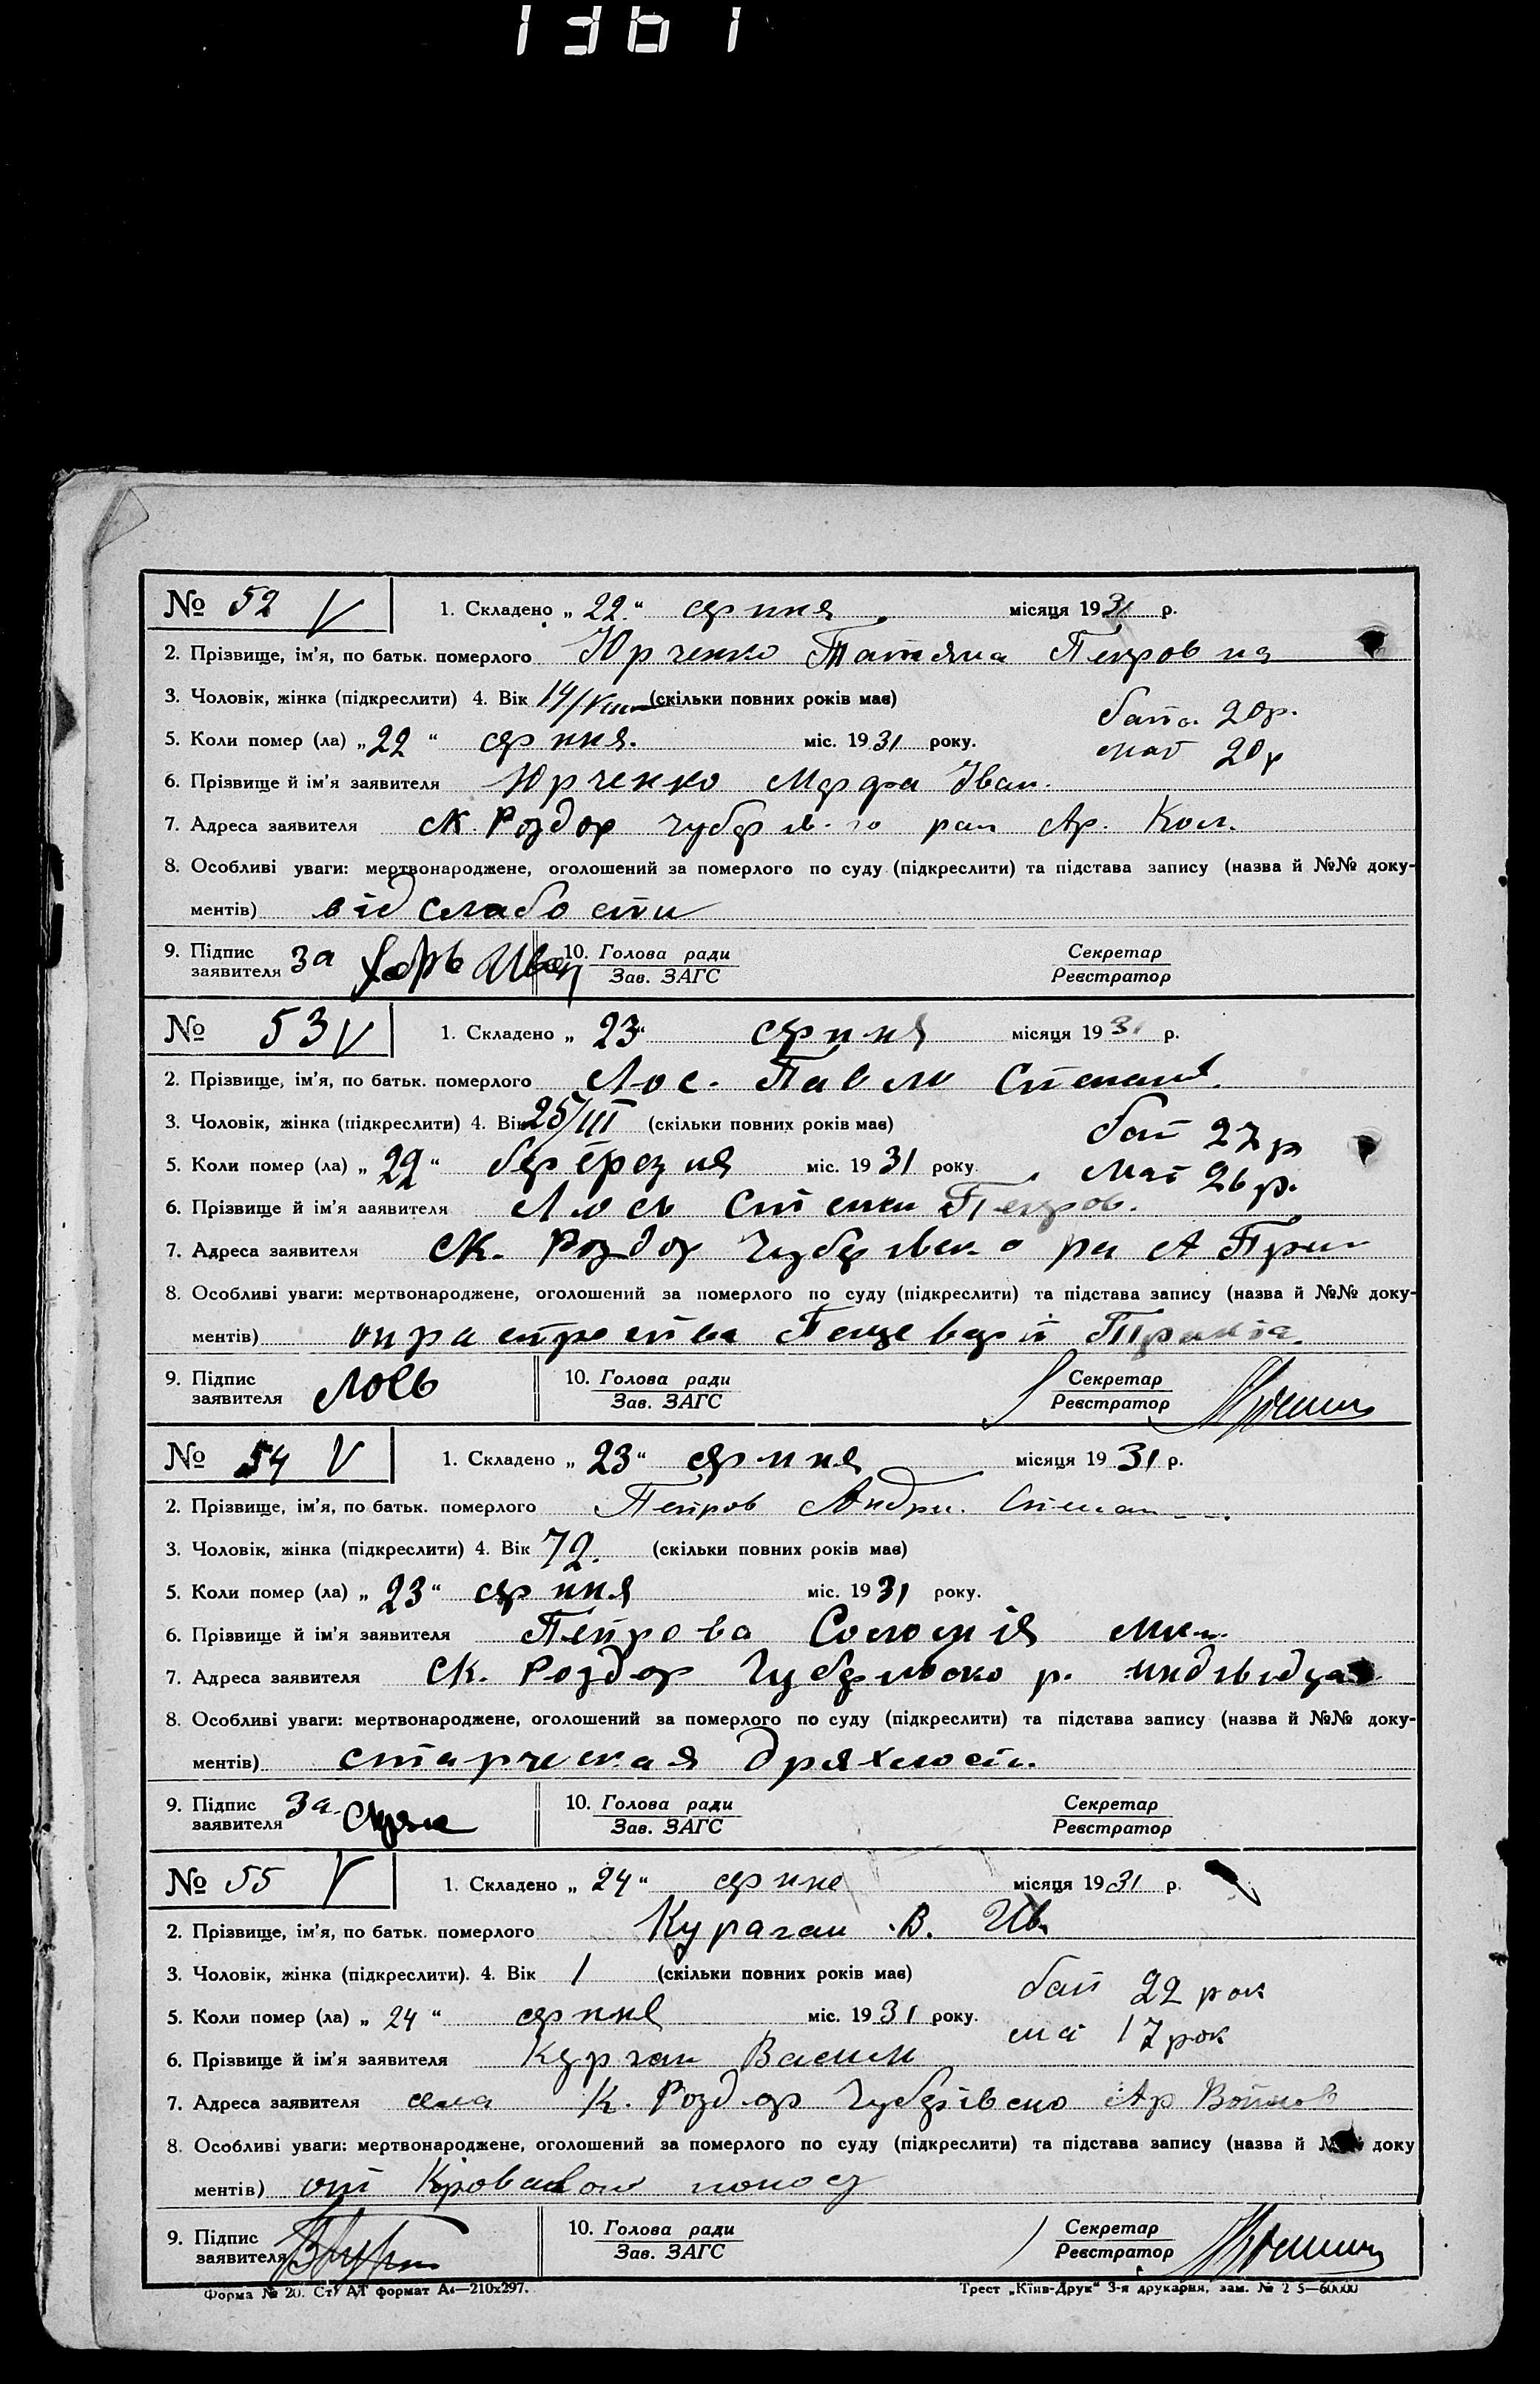 1361
№ 52 V 1. Складено „ 22 “ серпня місяця 1931 р.
2. Прізвище, ім’я, по батьк. померлого Юрченко Татяна Петровна
3. Чоловік, жінка (підкреслити) 4. Вік 14/VIII (скільки повних років має)
бать 20р.
5. Коли помер (ла) „ 22 “ серпня. міс. 1931 року.
мат 20р
6. Прізвище й ім’я заявителя Юрченко Марфа Іван.
7. Адреса заявителя с К. Роздор Чубар Ар. Кол.
8. Особливі уваги: мертвонароджене, оголошений за померлого по суду (підкреслити) та підстава запису (назва й №№ доку-
ментів) від слабости
9. Підпис заявителя за
10. Голова ради
Зав. ЗАГС
Секретар
Реєстратор
№ 53 V 1. Складено „ 23 “ серпня місяця 1931 р.
2. Прізвище, ім’я, по батьк. померлого Лос. Павло Степан.
3. Чоловік, жінка (підкреслити) 4. Вік 25/III (скільки повних років має)
бат 27р
5. Коли помер (ла) „ 22 “ міс. 1931 року
Мат 26р.
6. Прізвище й ім’я заявителя Лось Степан Петров.
7. Адреса заявителя с К. Роздор Чубарівско ра
8. Особливі уваги: мертвонароджене, оголошений за померлого по суду (підкреслити) та підстава запису (назва й №№ доку-
ментів)
9. Підпис заявителя Лось
10. Голова ради
Зав. ЗАГС
Секретар
Реєстратор
№ 54 V 1. Складено „ 23 “ серпня місяця 1931 р.
2. Прізвище, ім’я, по батьк. померлого Петров Андри. Степан
3. Чоловік, жінка (підкреслити) 4. Вік 72. (скільки повних років має)
5. Коли помер (ла) „ 23 “ серпня міс. 1931 року.
6. Прізвище й ім’я заявителя Петрова Соломія
7. Адреса заявителя с К. Роздор Чубарівско р.
8. Особливі уваги: мертвонароджене, оголошений за померлого по суду (підкреслити) та підстава запису (назва й №№ доку-
ментів) старческая дряхлость
9. Підпис заявителя за
10. Голова ради
Зав. ЗАГС
Секретар
Реєстратор
№ 55 V 1. Складено „ 24 “ серпня місяця 1931 р.
2. Прізвище, ім’я, по батьк. померлого Кураган В. Ив
3. Чоловік, жінка (підкреслити). 4. Вік 1 (скільки повних років має)
бат 22 рок
5. Коли помер (ла) „ 24 “ серпня міс. 1931 року.
ма 17 рок
6. Прізвище й ім’я заявителя Курган Васил
7. Адреса заявителя села К. Роздор Чубарівско Ар
8. Особливі уваги: мертвонароджене, оголошений за померлого по суду (підкреслити) та підстава запису (назва й доку
ментів) от Кровавого поноса
9. Підпис заявителя
10. Голова ради
Зав. ЗАГС
Секретар
Реєстратор
Форма № 20. Ст. АТ формат А4—210x297. Трест „Київ-Друк“ 3-я друкарня, зам. №